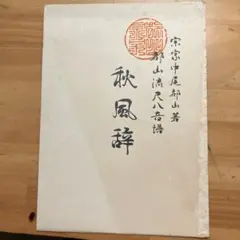 宗家中尾都山著
都山流尺八音譜
秋風辞